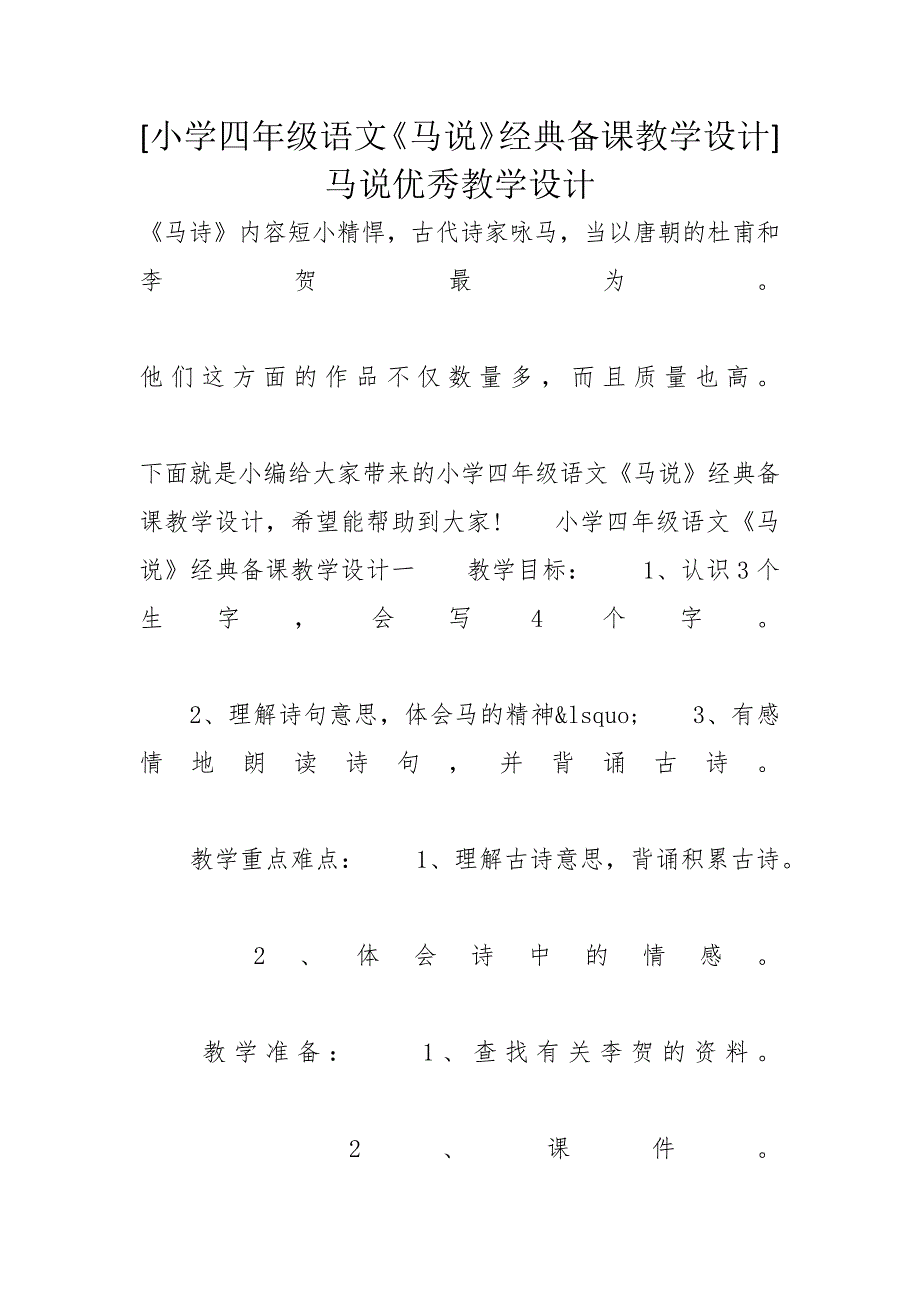 [小学四年级语文《马说》经典备课教学设计]
马说优秀教学设计
《马诗》内容短小精悍，古代诗家咏马，当以唐朝的杜甫和
李贺最为。
他们这方面的作品不仅数量多，而且质量也高。
下面就是小编给大家带来的小学四年级语文《马说》经典备
课教学设计，希望能帮助到大家!　　小学四年级语文《马
说》经典备课教学设计一　　教学目标：　　1、认识3个
生字，会写4个字。
2、理解诗句意思，体会马的精神&lsquo;　　3、有感
情地朗读诗句，并背诵古诗。
教学重点难点：　　1、理解古诗意思，背诵积累古诗。
2、体会诗中的情感。
教学准备：　　1、查找有关李贺的资料。
2、课件。